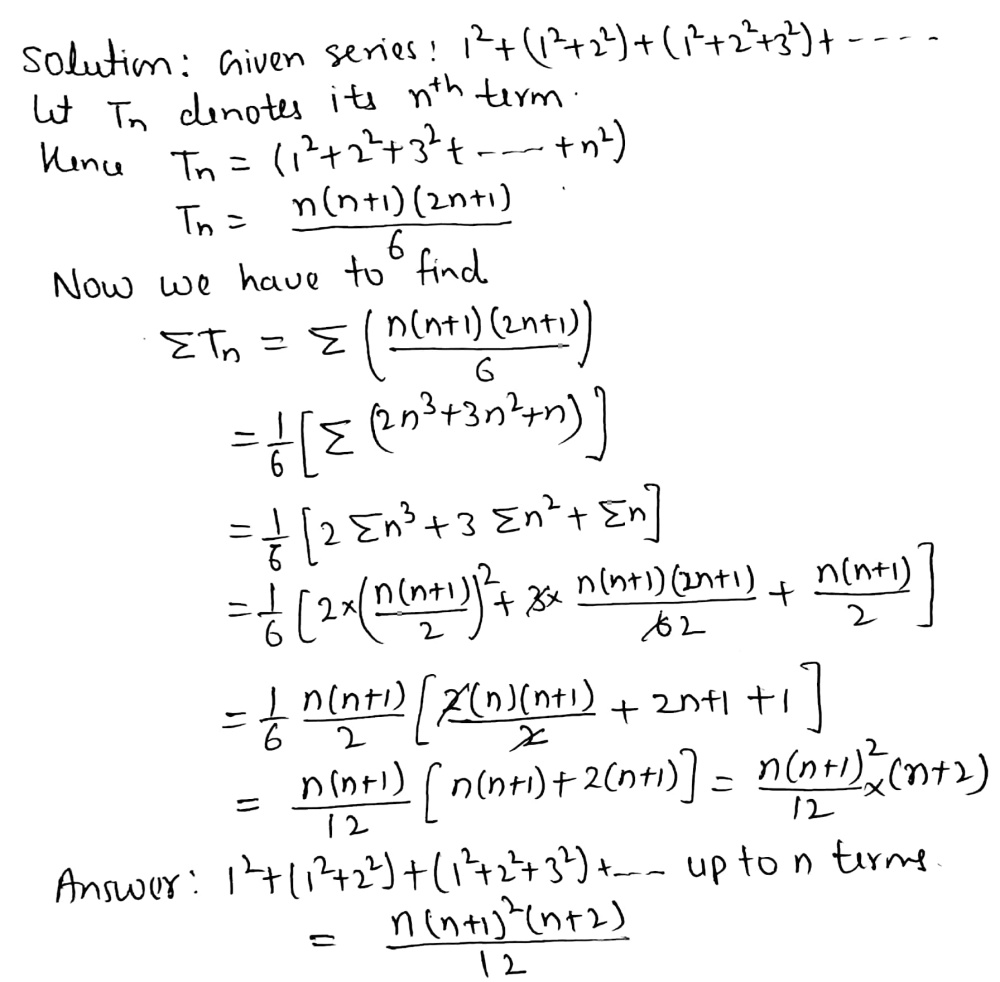 Solution: Given series: 1²+(1²+2²)+(1²+2²+3²)+-----
Let Tn denotes its nth term.
Hence Tn = (1²+2²+3²+----+n²)
Tn = n(n+1)(2n+1)/6
Now we have to find
ΣTn = Σ(n(n+1)(2n+1)/6)
= 1/6[Σ(2n³+3n²+n)]
= 1/6[2Σn³+3Σn²+Σn]
= 1/6[2×(n(n+1)/2)²+3×n(n+1)(2n+1)/62+n(n+1)/2]
= 1/6 n(n+1)/2[2(n)(n+1)/2+2n+1+1]
= n(n+1)/12[n(n+1)+2(n+1)] = n(n+1)²/12×(n+2)
Answer: 1²+(1²+2²)+(1²+2²+3²)+--- up to n terms.
= n(n+1)²(n+2)/12